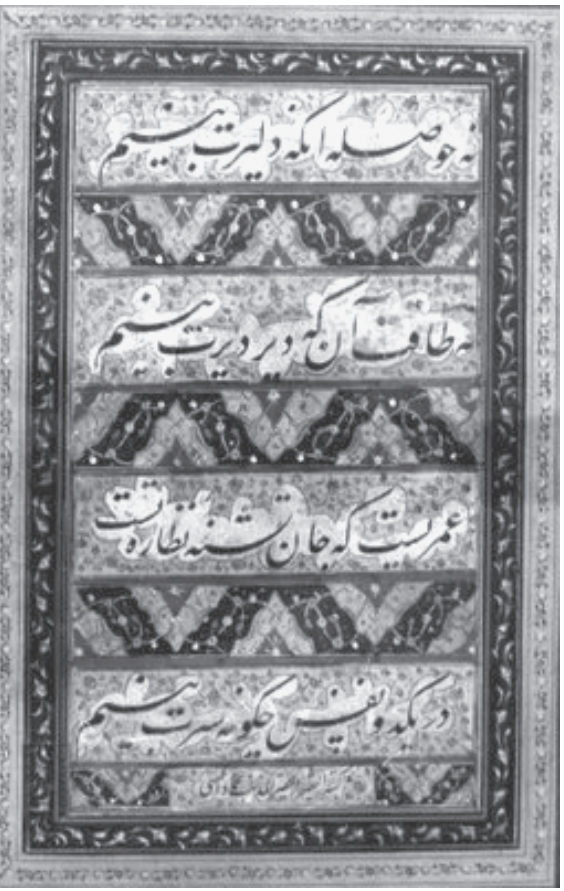 نه حوصله انکه دلیرت بینم
نه طاقت آن که دیر دیرت بینم
عمریست که جان تشنه نظاره تست
در یکدو نفس چکونه سیرت بینم